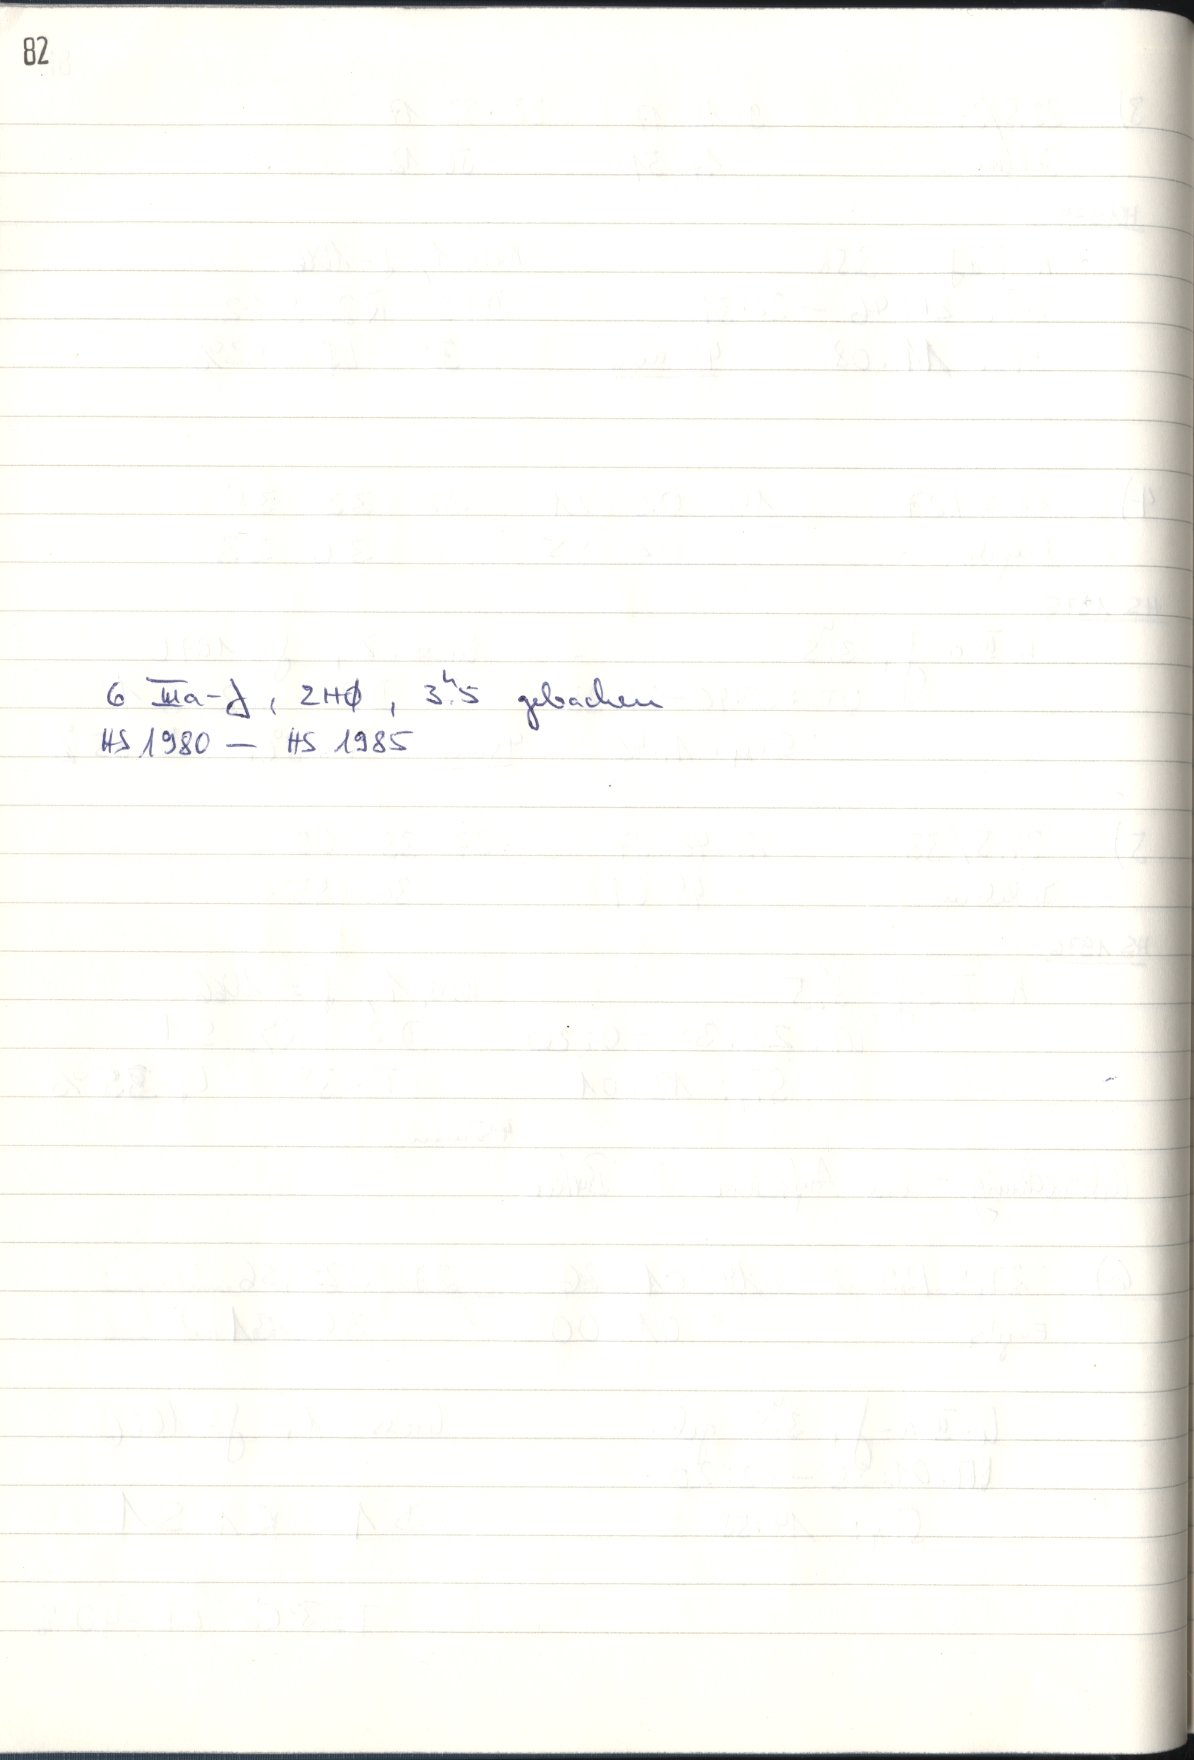 82
6 IIIa-f, 2Hφ, 3ʰ.5 gebacken
HS 1980 — HS 1985